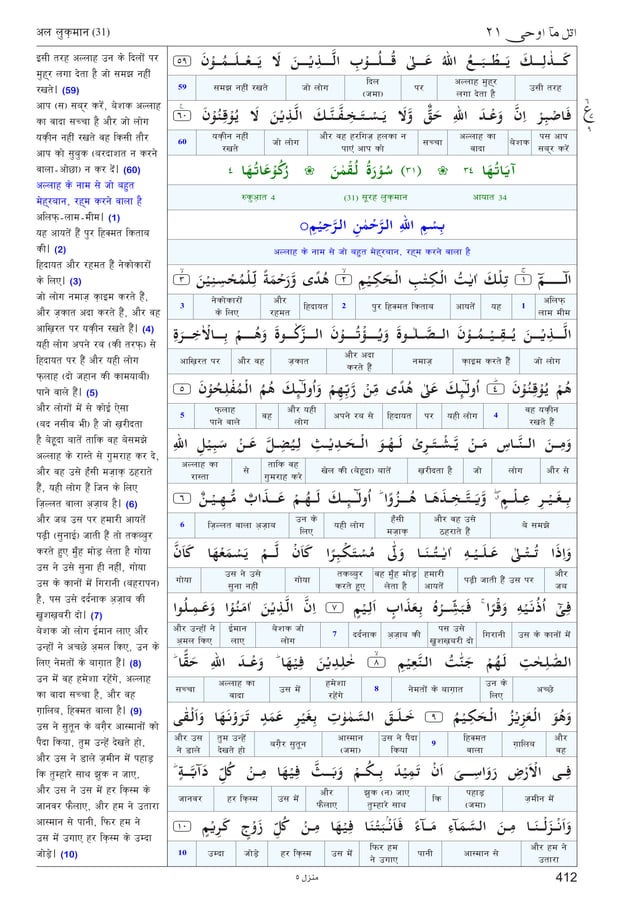 अल लुक़मान (31)
اتل مآ اوحی ٢١
इसी तरह अल्लाह उन के दिलों पर
मुहर लगा देता है जो समझ नहीं
रखते। (59)
आप (स) सब्र करें, बेशक अल्लाह
का वादा सच्चा है और जो लोग
यक़ीन नहीं रखते वह किसी तौर
आप को सुबुक (बरदाशत न करने
वाला-ओछा) न कर दें। (60)
अल्लाह के नाम से जो बहुत
मेहरबान, रहम करने वाला है
अलिफ़-लाम-मीम। (1)
यह आयतें हैं पुर हिक्मत किताब
की। (2)
हिदायत और रहमत हैं नेकोकारों
के लिए। (3)
जो लोग नमाज़ क़ाइम करते हैं,
और ज़कात अदा करते हैं, और वह
आख़िरत पर यक़ीन रखते हैं। (4)
यही लोग अपने रब (की तरफ़) से
हिदायत पर हैं और यही लोग
फ़लाह (दो जहान की कामयाबी)
पाने वाले हैं। (5)
और लोगों में से कोई ऐसा
(बद नसीब भी) है जो ख़रीदता
है बेहूदा बातें ताकि वह बेसमझे
अल्लाह के रास्ते से गुमराह कर दे,
और वह उसे हँसी मज़ाक़ ठहराते
हैं, यही लोग हैं जिन के लिए
ज़िल्लत वाला अज़ाब है। (6)
और जब उस पर हमारी आयतें
पढ़ी (सुनाई) जाती हैं तो तकब्बुर
करते हुए मुँह मोड़ लेता है गोया
उस ने उसे सुना ही नहीं, गोया
उस के कानों में गिरानी (बहरापन)
है, पस उसे दर्दनाक अज़ाब की
ख़ुशख़बरी दो। (7)
बेशक जो लोग ईमान लाए और
उन्होंने अच्छे अमल किए, उन के
लिए नेमतों के बाग़ात हैं। (8)
उन में वह हमेशा रहेंगे, अल्लाह
का वादा सच्चा है, और वह
ग़ालिब, हिक्मत वाला है। (9)
उस ने सुतून के बग़ैर आस्मानों को
पैदा किया, तुम उन्हें देखते हो,
और उस ने डाले ज़मीन में पहाड़
कि तुम्हारे साथ झुक न जाए,
और उस ने उस में हर किस्म के
जानवर फैलाए, और हम ने उतारा
आस्मान से पानी, फिर हम ने
उस में उगाए हर किस्म के उम्दा
जोड़े। (10)
كَذٰلِكَ يَطْبَعُ اللّٰهُ عَلٰى قُلُوْبِ الَّذِيْنَ لَا يَعْلَمُوْنَ ٥٩
उसी तरह | अल्लाह मुहर लगा देता है | पर | दिल (जमा) | जो लोग | समझ नहीं रखते | 59
فَاصْبِرْ اِنَّ وَعْدَ اللّٰهِ حَقٌّ وَّلَا يَسْتَخِفَّنَّكَ الَّذِيْنَ لَا يُوْقِنُوْنَ ٦٠
पस आप सब्र करें | बेशक | अल्लाह का वादा | सच्चा | और वह हरगिज़ हलका न पाएं आप को | जो लोग | यक़ीन नहीं रखते | 60
اٰيَاتُهَا ٣٤ ❀ (٣١) سُوْرَةُ لُقْمٰنَ ❀ رُكُوْعَاتُهَا ٤
आयात 34 (31) सूरह लुक़मान रुकुआ़त 4
بِسْمِ اللّٰهِ الرَّحْمٰنِ الرَّحِيْمِ
अल्लाह के नाम से जो बहुत मेहरबान, रहम करने वाला है
الٓمّٓ ١ تِلْكَ اٰيٰتُ الْكِتٰبِ الْحَكِيْمِ ٢ هُدًى وَّرَحْمَةً لِّلْمُحْسِنِيْنَ ٣
अलिफ़ लाम मीम | 1 | यह | आयतें | पुर हिक्मत किताब | 2 | हिदायत | और रहमत | नेकोकारों के लिए | 3
الَّذِيْنَ يُقِيْمُوْنَ الصَّلٰوةَ وَيُؤْتُوْنَ الزَّكٰوةَ وَهُمْ بِالْاٰخِرَةِ
जो लोग | क़ाइम करते हैं | नमाज़ | और अदा करते हैं | ज़कात | और वह | आख़िरत पर
هُمْ يُوْقِنُوْنَ ٤ اُولٰٓئِكَ عَلٰى هُدًى مِّنْ رَّبِّهِمْ وَاُولٰٓئِكَ هُمُ الْمُفْلِحُوْنَ ٥
वह यक़ीन रखते हैं | 4 | यही लोग | पर | हिदायत | अपने रब से | और यही लोग | वह | फ़लाह पाने वाले | 5
وَمِنَ النَّاسِ مَنْ يَّشْتَرِيْ لَهْوَ الْحَدِيْثِ لِيُضِلَّ عَنْ سَبِيْلِ اللّٰهِ
और से | लोग | जो | ख़रीदता है | खेल की (बेहूदा) बातें | ताकि वह गुमराह करे | से | अल्लाह का रास्ता
بِغَيْرِ عِلْمٍ وَّيَتَّخِذَهَا هُزُوًا اُولٰٓئِكَ لَهُمْ عَذَابٌ مُّهِيْنٌ ٦
बे समझे | और वह उसे ठहराते हैं | हँसी मज़ाक़ | यही लोग | उन के लिए | ज़िल्लत वाला अज़ाब | 6
وَاِذَا تُتْلٰى عَلَيْهِ اٰيٰتُنَا وَلّٰى مُسْتَكْبِرًا كَاَنْ لَّمْ يَسْمَعْهَا كَاَنَّ
और जब | पढ़ी जाती हैं उस पर | हमारी आयतें | वह मुँह मोड़ लेता है | तकब्बुर करते हुए | गोया | उस ने उसे सुना नहीं | गोया
فِيْٓ اُذُنَيْهِ وَقْرًا فَبَشِّرْهُ بِعَذَابٍ اَلِيْمٍ ٧ اِنَّ الَّذِيْنَ اٰمَنُوْا وَعَمِلُوا
उस के कानों में | गिरानी | पस उसे ख़ुशख़बरी दो | अज़ाब की | दर्दनाक | 7 | बेशक जो लोग | ईमान लाए | और उन्होंने अमल किए
الصّٰلِحٰتِ لَهُمْ جَنّٰتُ النَّعِيْمِ ٨ خٰلِدِيْنَ فِيْهَا وَعْدَ اللّٰهِ حَقًّا
अच्छे | उन के लिए | नेमतों के बाग़ात | 8 | हमेशा रहेंगे | उस में | अल्लाह का वादा | सच्चा
وَهُوَ الْعَزِيْزُ الْحَكِيْمُ ٩ خَلَقَ السَّمٰوٰتِ بِغَيْرِ عَمَدٍ تَرَوْنَهَا وَاَلْقٰى
और वह | ग़ालिब | हिक्मत वाला | 9 | उस ने पैदा किया | आस्मान (जमा) | बग़ैर सुतून | तुम उन्हें देखते हो | और उस ने डाले
فِي الْاَرْضِ رَوَاسِيَ اَنْ تَمِيْدَ بِكُمْ وَبَثَّ فِيْهَا مِنْ كُلِّ دَآبَّةٍ
ज़मीन में | पहाड़ (जमा) | कि | झुक (न) जाए तुम्हारे साथ | और फैलाए | उस में | हर किस्म | जानवर
وَاَنْزَلْنَا مِنَ السَّمَآءِ مَآءً فَاَنْۢبَتْنَا فِيْهَا مِنْ كُلِّ زَوْجٍ كَرِيْمٍ ١٠
और हम ने उतारा | आस्मान से | पानी | फिर हम ने उगाए | उस में | हर किस्म | जोड़े | उम्दा | 10
منزل ٥
412